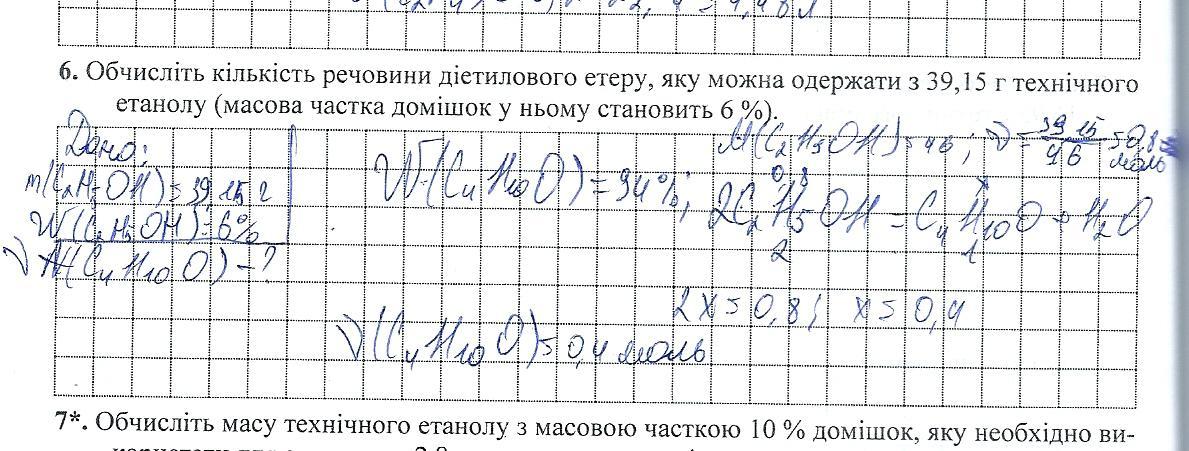 6. Обчисліть кількість речовини діетилового етеру, яку можна одержати з 39,15 г технічного
етанолу (масова частка домішок у ньому становить 6 %).
Дано:
m(C₂H₅OH)=39,15 г
W(C₂H₅OH)=6%
ν(C₄H₁₀O)-?
W(C₄H₁₀O)=94%;
M(C₂H₅OH)=46; ν=39,15/46=0,8 моль
0,8 x
2C₂H₅OH=C₄H₁₀O+H₂O
2 1
2x=0,8; x=0,4
ν(C₄H₁₀O)=0,4 моль
7*. Обчисліть масу технічного етанолу з масовою часткою 10 % домішок, яку необхідно ви-